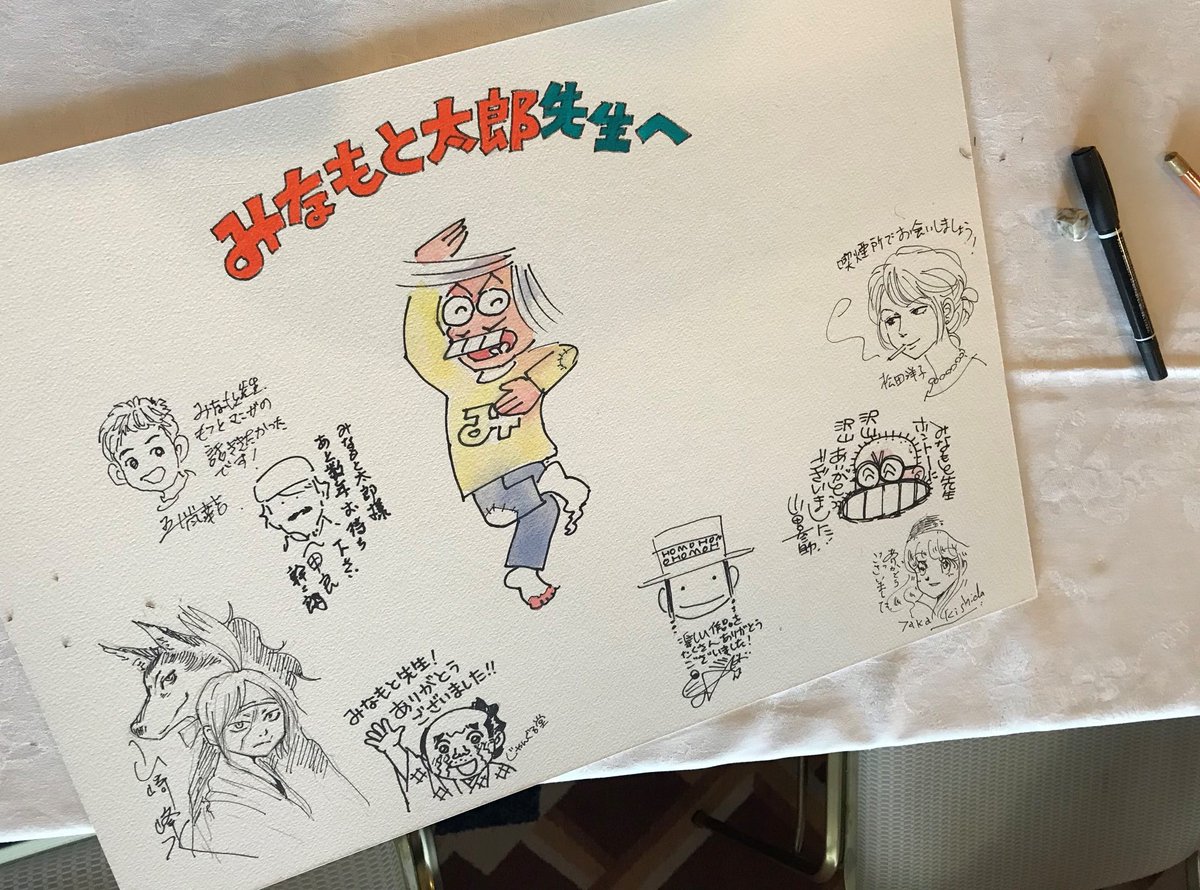 みなもと太郎先生へ
み
喫煙所でお会いしましょう!
松田洋子
みなもと先生
もっとマンガの
話ききたかった
です!
みなもと太郎様
あと数年お待ち下さい
みなもと先生
ホントーに
沢山
沢山ありがとう
ございました!
HOMOHOMO
HOMOHOMO
楽しい作品を
たくさんありがとう
ございました!
みなもと先生!
ありがとう
ございました!!
じゃんぐる堂
山崎峰水